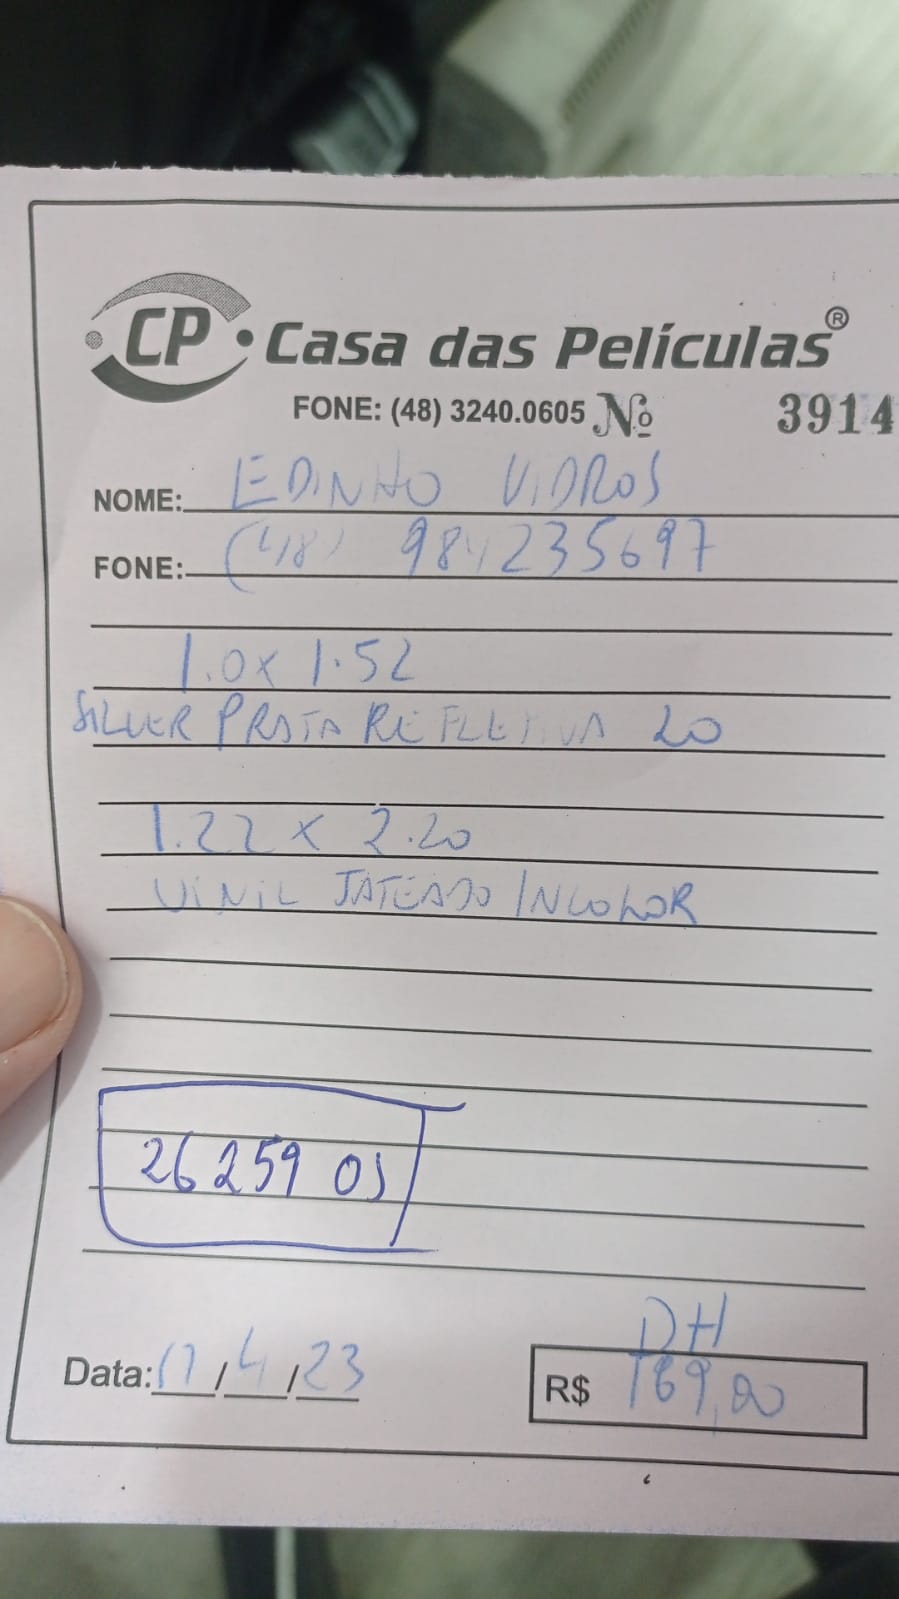 CP Casa das Películas®
FONE: (48) 3240.0605 Nº 3914
NOME: EDINHO VIDROS
FONE: (48) 984235697
1.0 x 1.52
SILVER PRATA REFLETIVA 20
1.22 x 2.20
VINIL JATEADO INCOLOR
26259 OS
DH
Data: 17/4/23 R$ 169,00